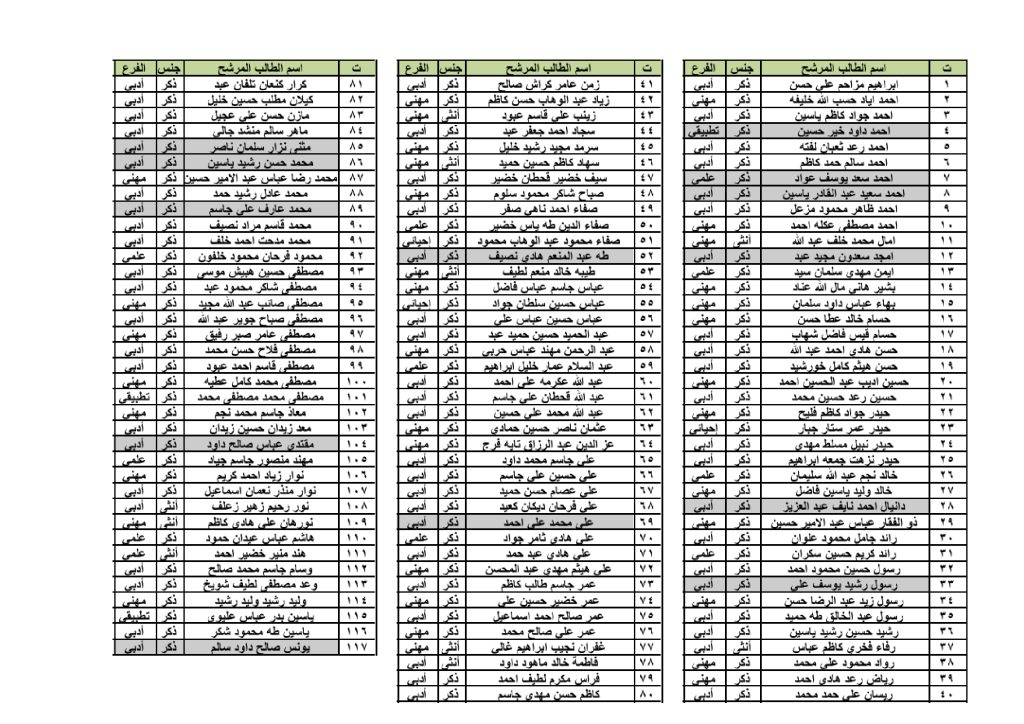 ت اسم الطالب المرشح جنس الفرع
١ ابراهيم مزاحم علي حسن ذكر أدبي
٢ احمد اياد حسب الله خليفه ذكر مهني
٣ احمد جواد كاظم ياسين ذكر أدبي
٤ احمد داود خير حسين ذكر تطبيقي
٥ احمد رعد ثعبان لفته ذكر أدبي
٦ احمد سالم حمد كاظم ذكر أدبي
٧ احمد سعد يوسف عواد ذكر علمي
٨ احمد سعيد عبد القادر ياسين ذكر أدبي
٩ احمد ظاهر محمود مزعل ذكر أدبي
١٠ احمد مصطفى عكله احمد ذكر مهني
١١ امال محمد خلف عبد الله أنثى مهني
١٢ امجد سعدون مجيد عبد ذكر أدبي
١٣ ايمن مهدي سلمان سيد ذكر علمي
١٤ بشير هاني مال الله عناد ذكر مهني
١٥ بهاء عباس داود سلمان ذكر مهني
١٦ حسام خالد عطا حسن ذكر مهني
١٧ حسام قيس فاضل شهاب ذكر أدبي
١٨ حسن هادي احمد عبد الله ذكر أدبي
١٩ حسن هيثم كامل خورشيد ذكر أدبي
٢٠ حسين اديب عبد الحسين احمد ذكر مهني
٢١ حسين رعد حسين محمد ذكر أدبي
٢٢ حيدر جواد كاظم فليح ذكر مهني
٢٣ حيدر عمر ستار جبار ذكر إحيائي
٢٤ حيدر نبيل مسلط مهدي ذكر أدبي
٢٥ حيدر نزهت جمعه ابراهيم ذكر أدبي
٢٦ خالد نجم عبد الله سليمان ذكر علمي
٢٧ خالد وليد ياسين فاضل ذكر مهني
٢٨ دانيال احمد نايف عبد العزيز ذكر أدبي
٢٩ ذو الفقار عباس عبد الامير حسين ذكر مهني
٣٠ رائد جامل محمود علوان ذكر أدبي
٣١ رائد كريم حسين سكران ذكر علمي
٣٢ رسول حسين محمود احمد ذكر أدبي
٣٣ رسول رشيد يوسف علي ذكر أدبي
٣٤ رسول زيد عبد الرضا حسن ذكر مهني
٣٥ رسول عبد الخالق طه حميد ذكر أدبي
٣٦ رشيد حسين رشيد ياسين ذكر أدبي
٣٧ رفاء فخري كاظم عباس أنثى أدبي
٣٨ رواد محمود علي محمد ذكر مهني
٣٩ رياض رعد هادي احمد ذكر مهني
٤٠ ريسان علي حمد محمد ذكر أدبي
ت اسم الطالب المرشح جنس الفرع
٤١ زمن عامر كراش صالح ذكر أدبي
٤٢ زياد عبد الوهاب حسن كاظم ذكر مهني
٤٣ زينب علي قاسم عبود أنثى مهني
٤٤ سجاد احمد جعفر عبد ذكر أدبي
٤٥ سرمد مجيد رشيد خليل ذكر مهني
٤٦ سهاد كاظم حسين حميد أنثى مهني
٤٧ سيف خضير قحطان خضير ذكر أدبي
٤٨ صباح شاكر محمود سلوم ذكر مهني
٤٩ صفاء احمد ناهي صفر ذكر أدبي
٥٠ صفاء الدين طه ياس خضير ذكر علمي
٥١ صفاء محمود عبد الوهاب محمود ذكر إحيائي
٥٢ طه عبد المنعم هادي نصيف ذكر أدبي
٥٣ طيبه خالد منعم لطيف أنثى مهني
٥٤ عباس جاسم عباس فاضل ذكر مهني
٥٥ عباس حسين سلطان جواد ذكر إحيائي
٥٦ عباس حسين عباس علي ذكر أدبي
٥٧ عبد الحميد حسين حميد عبد ذكر أدبي
٥٨ عبد الرحمن مهند عباس حربي ذكر مهني
٥٩ عبد السلام عمار خليل ابراهيم ذكر علمي
٦٠ عبد الله عكرمه علي احمد ذكر أدبي
٦١ عبد الله قحطان علي جاسم ذكر أدبي
٦٢ عبد الله محمد علي حسين ذكر أدبي
٦٣ عثمان ناصر حسين حمادي ذكر مهني
٦٤ عز الدين عبد الرزاق تايه فرج ذكر مهني
٦٥ علي جاسم محمد داود ذكر أدبي
٦٦ علي حسين علي جاسم ذكر أدبي
٦٧ علي عصام حسن حميد ذكر أدبي
٦٨ علي فرحان ديكان كعيد ذكر أدبي
٦٩ علي محمد علي احمد ذكر أدبي
٧٠ علي هادي ثامر جواد ذكر علمي
٧١ علي هادي عبد حمد ذكر أدبي
٧٢ علي هيثم مهدي عبد المحسن ذكر مهني
٧٣ عمر جاسم طالب كاظم ذكر أدبي
٧٤ عمر خضير حسين علي ذكر مهني
٧٥ عمر صالح احمد اسماعيل ذكر أدبي
٧٦ عمر علي صالح محمد ذكر مهني
٧٧ غفران نجيب ابراهيم غالي أنثى مهني
٧٨ فاطمة خالد ماهود داود أنثى أدبي
٧٩ فراس مكرم لطيف احمد ذكر أدبي
٨٠ كاظم حسن مهدي جاسم ذكر أدبي
ت اسم الطالب المرشح جنس الفرع
٨١ كرار كنعان تلفان عبد ذكر أدبي
٨٢ كيلان مطلب حسين خليل ذكر مهني
٨٣ مازن حسن علي عجيل ذكر أدبي
٨٤ ماهر سالم منشد جالي ذكر أدبي
٨٥ مثنى نزار سلمان ناصر ذكر أدبي
٨٦ محمد حسن رشيد ياسين ذكر أدبي
٨٧ محمد رضا عباس عبد الامير حسين ذكر مهني
٨٨ محمد عادل رشيد حمد ذكر أدبي
٨٩ محمد عارف علي جاسم ذكر أدبي
٩٠ محمد قاسم مراد نصيف ذكر مهني
٩١ محمد مدحت احمد خلف ذكر أدبي
٩٢ محمود فرحان محمود خلفون ذكر علمي
٩٣ مصطفى حسين هبيش موسى ذكر أدبي
٩٤ مصطفى شاكر محمود عبد ذكر مهني
٩٥ مصطفى صائب عبد الله مجيد ذكر مهني
٩٦ مصطفى صباح جوير عبد الله ذكر أدبي
٩٧ مصطفى عامر صبر رفيق ذكر مهني
٩٨ مصطفى فلاح حسن محمد ذكر أدبي
٩٩ مصطفى قاسم احمد عبود ذكر أدبي
١٠٠ مصطفى محمد كامل عطيه ذكر مهني
١٠١ مصطفى محمد مصطفى محمد ذكر تطبيقي
١٠٢ معاذ جاسم محمد نجم ذكر مهني
١٠٣ معد زيدان حسين زيدان ذكر أدبي
١٠٤ مقتدى عباس صالح داود ذكر أدبي
١٠٥ مهند منصور جاسم جياد ذكر علمي
١٠٦ نوار زياد احمد كريم ذكر مهني
١٠٧ نوار منذر نعمان اسماعيل ذكر أدبي
١٠٨ نور رحيم زهير زعلف أنثى أدبي
١٠٩ نورهان علي هادي كاظم أنثى مهني
١١٠ هاشم عباس عيدان حمود ذكر علمي
١١١ هند منير خضير احمد أنثى علمي
١١٢ وسام جاسم محمد صالح ذكر أدبي
١١٣ وعد مصطفى لطيف شويخ ذكر أدبي
١١٤ وليد رشيد وليد رشيد ذكر مهني
١١٥ ياسين بدر عباس عليوي ذكر تطبيقي
١١٦ ياسين طه محمود شكر ذكر أدبي
١١٧ يونس صالح داود سالم ذكر أدبي